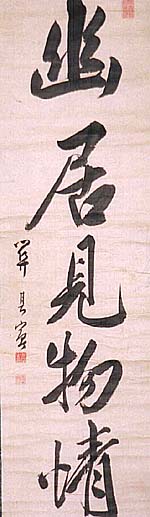 幽居見物情